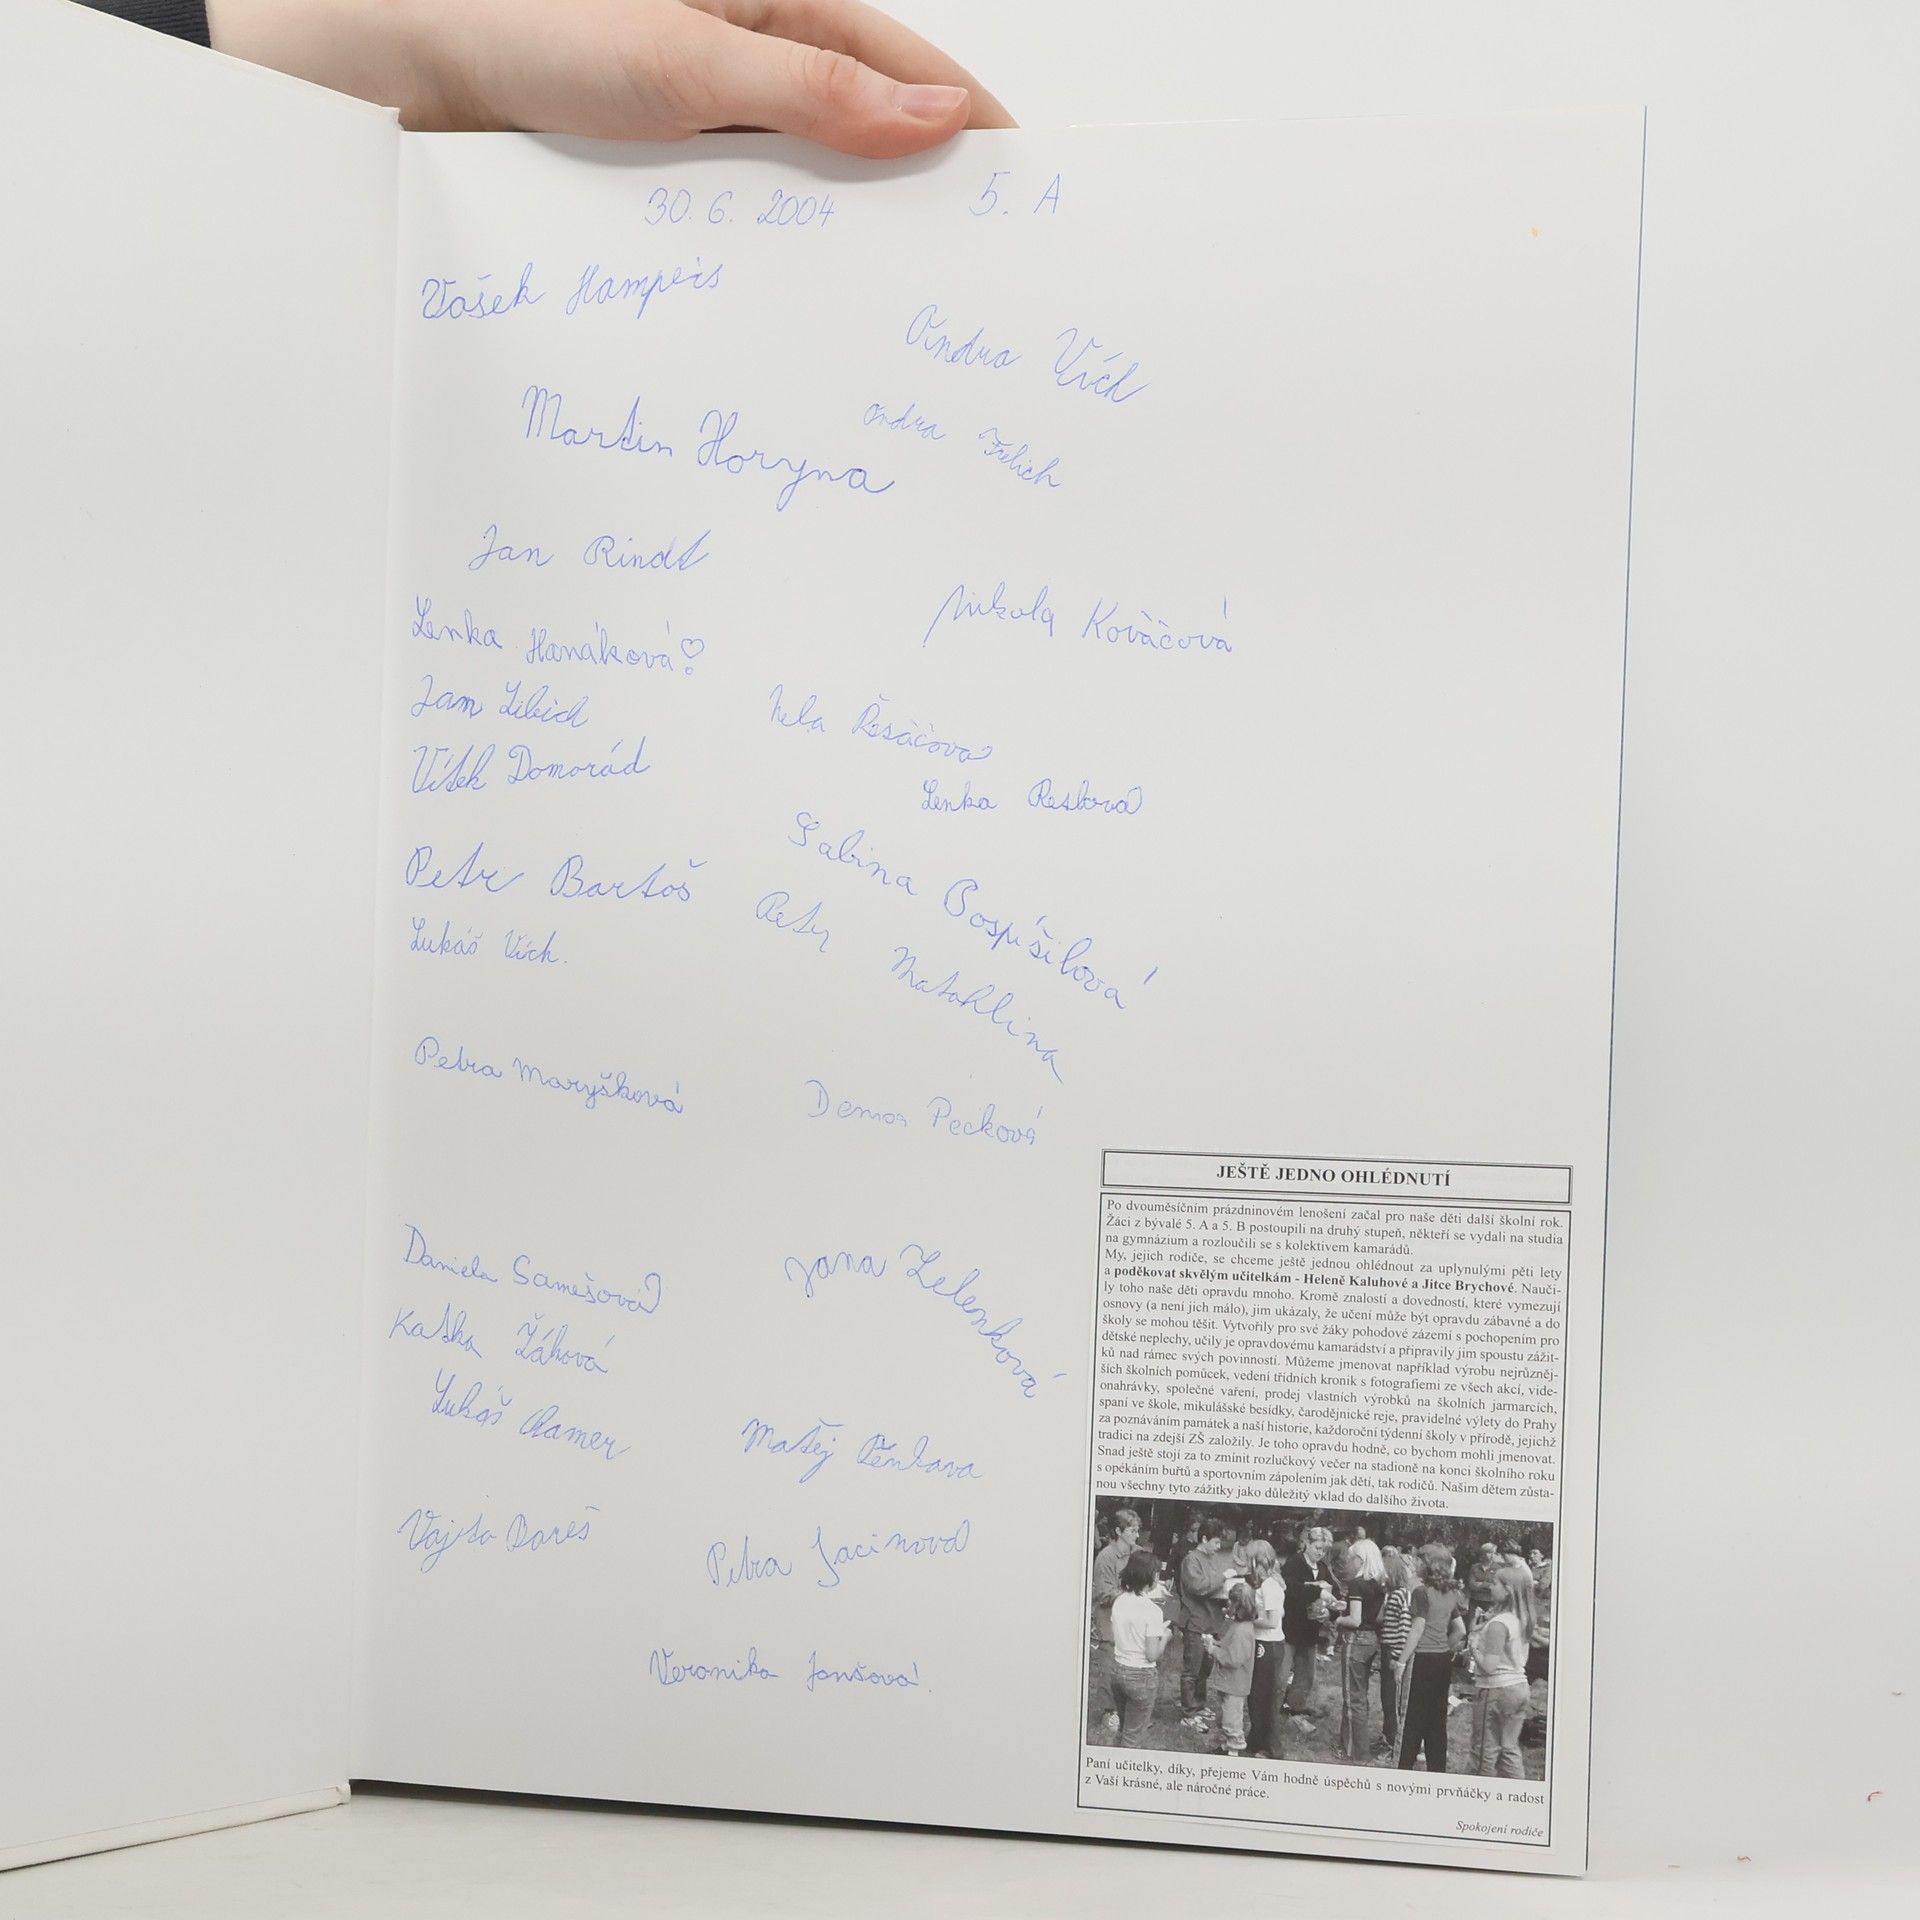 30. 6. 2004 5. A
Vašek Hampejs
Ondra Vích
Martin Horyna
Ondra Frelich
Jan Rindt
Nikola Kováčová
Lenka Hanáková
Jan Libich
Nela Řezáčová
Vítek Domorád
Lenka
Sabina Pospíšilová
Petr Bartoš
Petr Matohlina
Lukáš Vích.
Petra Maryšková
Denisa Pecková
Daniela Samešová
Jana Zelenková
Katka Žáková
Lukáš
Matěj Pěnkava
Vojta Bareš
Petra Jacinová
Veronika Janšová.
JEŠTĚ JEDNO OHLÉDNUTÍ
Po dvouměsíčním prázdninovém lenošení začal pro naše děti další školní rok.
Žáci z bývalé 5. A a 5. B postoupili na druhý stupeň, někteří se vydali na studia
na gymnázium a rozloučili se s kolektivem kamarádů.
My, jejich rodiče, se chceme ještě jednou ohlédnout za uplynulými pěti lety
a poděkovat skvělým učitelkám - Heleně Kaluhové a Jitce Brychové. Nauči-
ly toho naše děti opravdu mnoho. Kromě znalostí a dovedností, které vymezují
osnovy (a není jich málo), jim ukázaly, že učení může být opravdu zábavné a do
školy se mohou těšit. Vytvořily pro své žáky pohodové zázemí s pochopením pro
dětské neplechy, učily je opravdovému kamarádství a připravily jim spoustu zážit-
ků nad rámec svých povinností. Můžeme jmenovat například výrobu nejrůzněj-
ších školních pomůcek, vedení třídních kronik s fotografiemi ze všech akcí, vide-
onahrávky, společné vaření, prodej vlastních výrobků na školních jarmarcích,
spaní ve škole, mikulášské besídky, čarodějnické reje, pravidelné výlety do Prahy
za poznáváním památek a naší historie, každoroční týdenní školy v přírodě, jejichž
tradici na zdejší ZŠ založily. Je toho opravdu hodně, co bychom mohli jmenovat.
Snad ještě stojí za to zmínit rozlučkový večer na stadioně na konci školního roku
s opékáním buřtů a sportovním zápolením jak dětí, tak rodičů. Našim dětem zůsta-
nou všechny tyto zážitky jako důležitý vklad do dalšího života.
Paní učitelky, díky, přejeme Vám hodně úspěchů s novými prvňáčky a radost
z Vaší krásné, ale náročné práce.
Spokojení rodiče